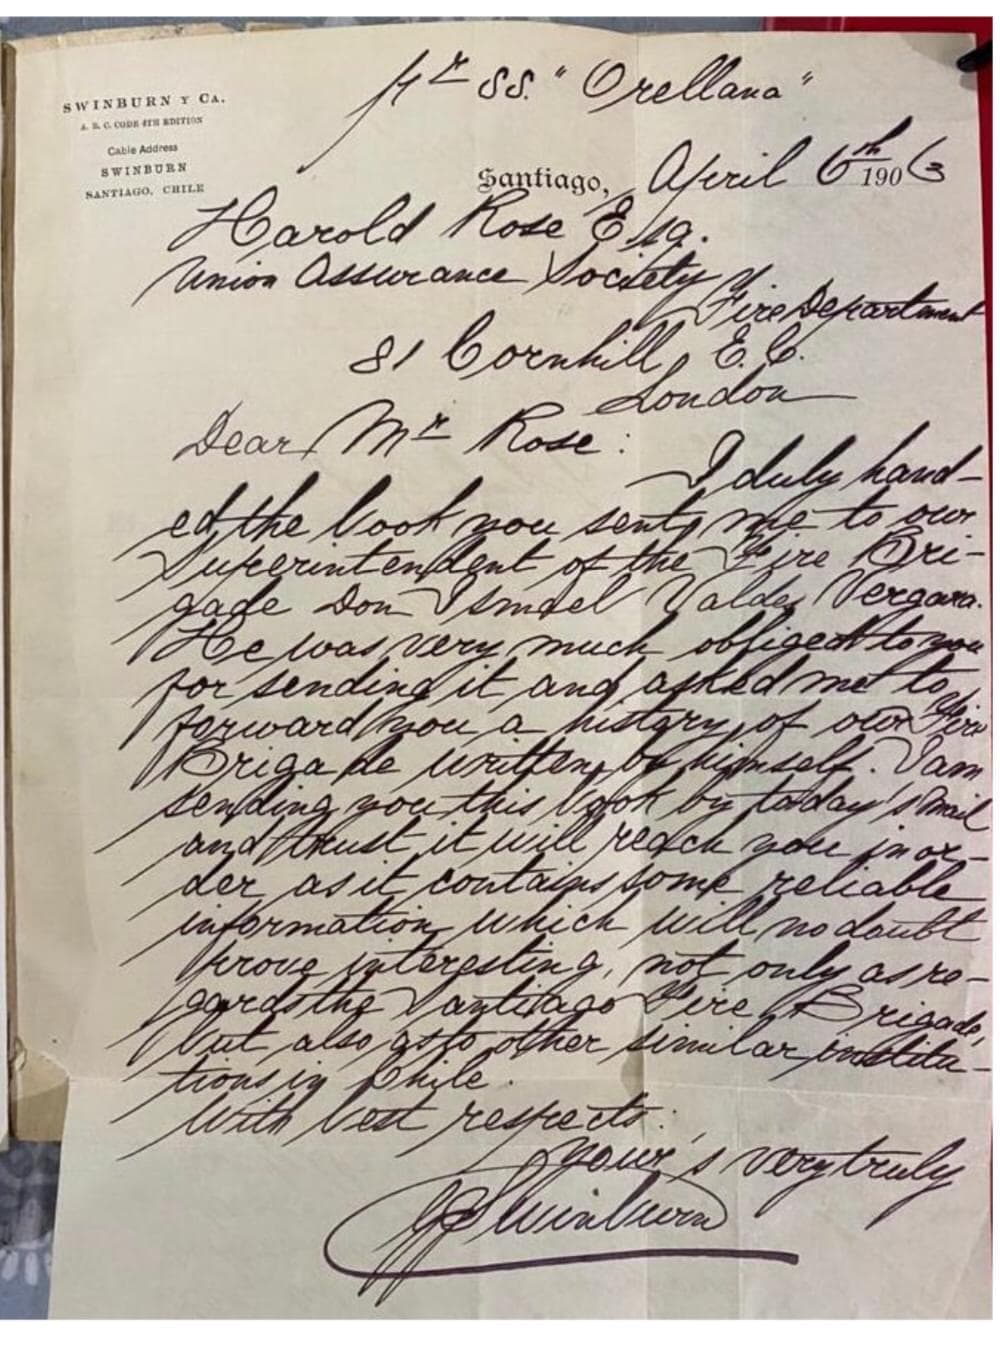 pr SS. "Orellana"
SWINBURN Y CA.
A. B. C. CODE 4TH EDITION
Cable Address
SWINBURN
SANTIAGO, CHILE
Santiago, April 6th 1903
Harold Rose Esq.
Union Assurance Society
Fire Department
81 Cornhill, E.C.
London
Dear Mr Rose:
I duly hand-
ed the book you sent me to our
Superintendent of the Fire Bri-
gade Don Ismael Valdes Vergara.
He was very much obliged to you
for sending it and asked me to
forward you a history of our Fire
Brigade written by himself. I am
sending you this book by today's mail
and trust it will reach you in or-
der as it contains some reliable
information which will no doubt
prove interesting, not only as re-
gards the Santiago Fire Brigade,
but also as to other similar institu-
tions in Chile.
With best respects.
your's very truly
Swinburn